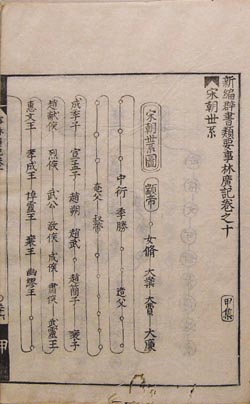 新編群書類要事林廣記卷之十 甲集
宋朝世系
宋朝世系圖
顓帝 女脩 大業 大費 大廉
中衍 季勝 造父
奄父 叔帶
成季子 宣孟子 趙朔 趙武 趙簡子 襄子
趙獻侯 烈侯 武公 敬侯 成侯 肅侯 武靈王
惠文王 孝成王 悼襄王 幽繆王
甲